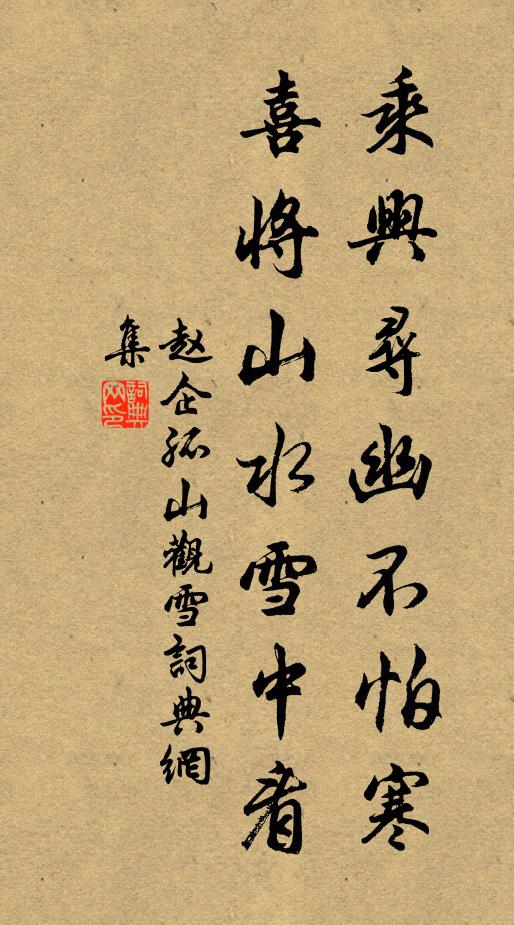 乘興尋幽不怕寒
喜將山水雪中看
赵企孤山觀雪詞典網
集
詞典
网印